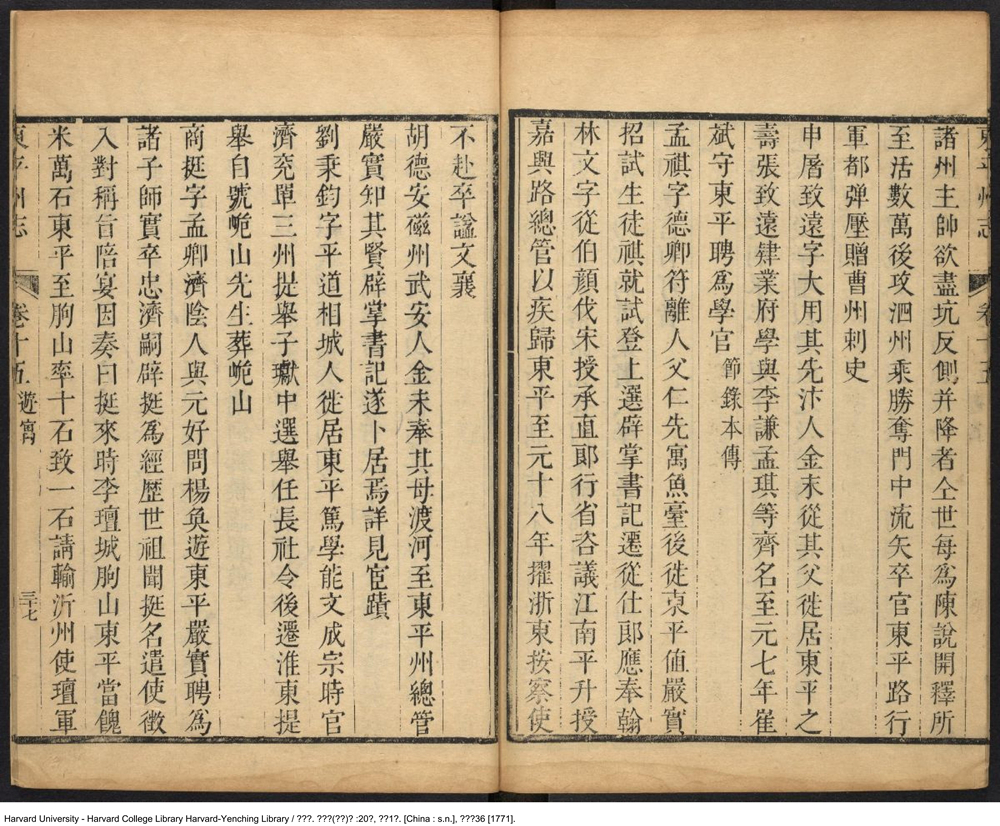 東平州志
卷十五
諸州主帥欲盡坑反側并降者仝世每爲陳說開釋所
至活數萬後攻泗州乘勝奪門中流矢卒官東平路行
軍都彈壓贈曹州刺史
申屠致遠字大用其先汴人金末從其父徙居東平之
壽張致遠肄業府學與李謙孟琪等齊名至元七年崔
斌守東平聘爲學官節錄本傳
孟祺字德卿符離人父仁先寓魚臺後徙東平値嚴實
招試生徒祺就試登上選辟掌書記遷從仕郎應奉翰
林文字從伯顔伐宋授承直郎行省咨議江南平升授
嘉興路總管以疾歸東平至元十八年擢浙東按察使
不赴卒諡文襄
胡德安磁州武安人金末奉其母渡河至東平州總管
嚴實知其賢辟掌書記遂卜居焉詳見宦蹟
劉秉鈞字平道相城人徙居東平篤學能文成宗時官
濟兖單三州提舉子獻中選舉任長社令後遷淮東提
舉自號峗山先生葬峗山
商挺字孟卿濟陰人與元好問楊奐遊東平嚴實聘爲
諸子師實卒忠濟嗣辟挺爲經歷世祖聞挺名遣使徵
入對稱旨陪宴因奏曰挺來時李璮城朐山東平當餽
米萬石東平至朐山率十石致一石請輸沂州使璮軍
東平州志
卷十五
遊寓
三十七
Harvard University - Harvard College Library Harvard-Yenching Library / ???. ???(??)? :20?, ??1?. [China : s.n.], ???36 [1771].